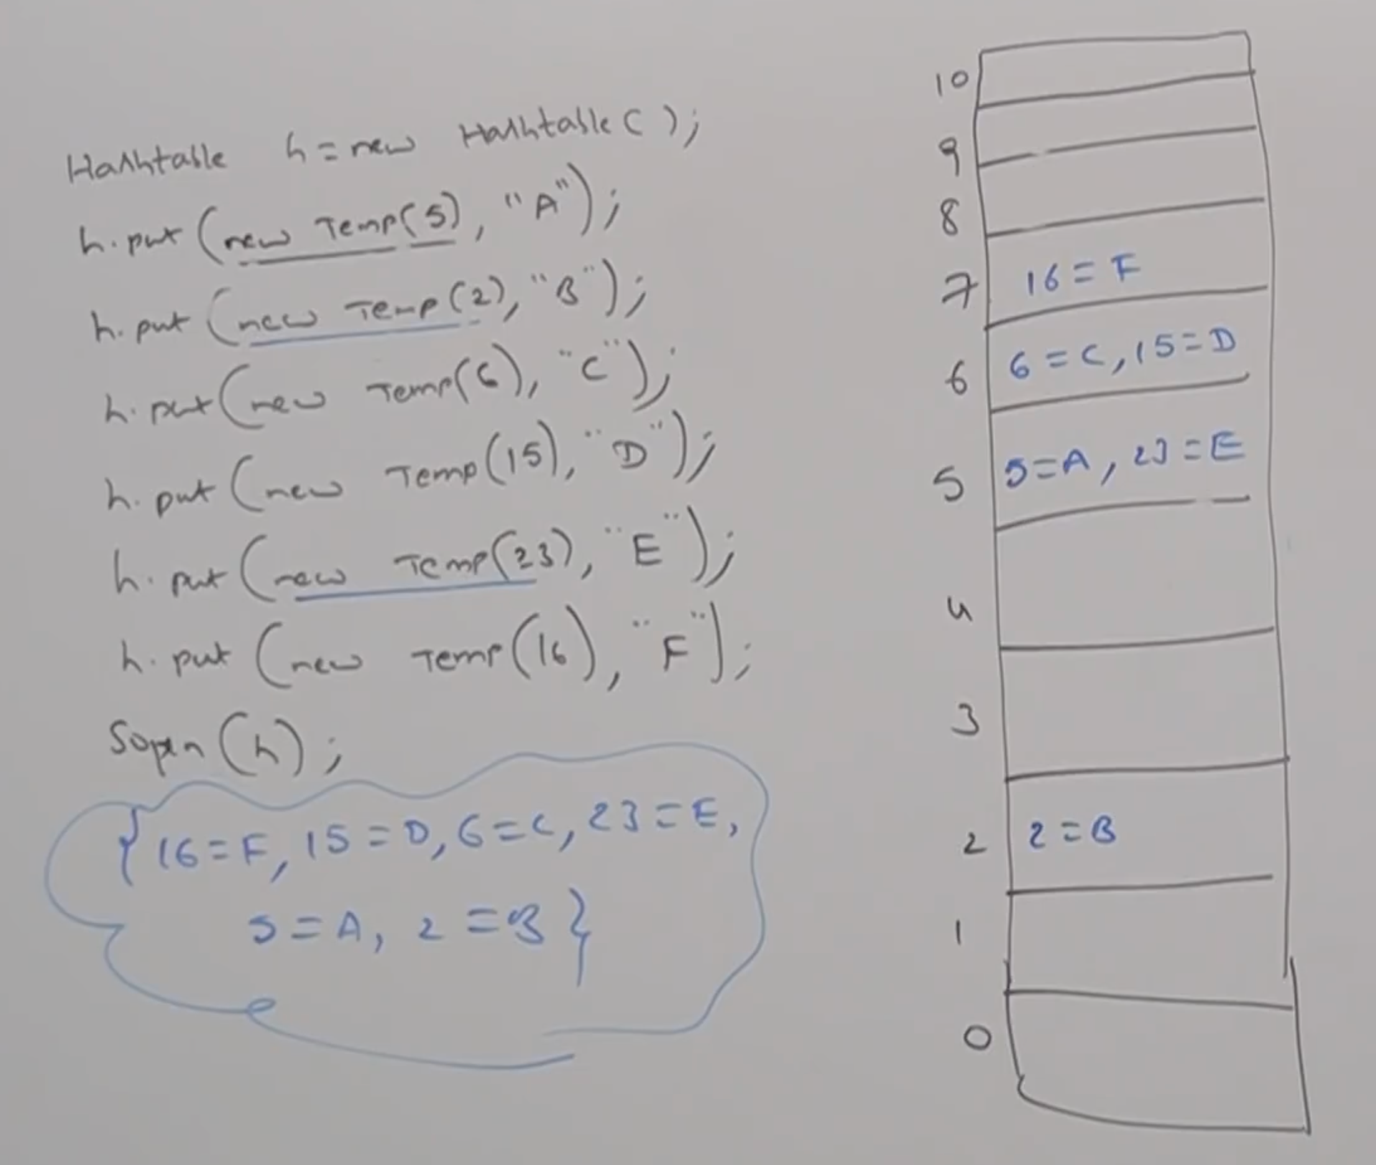 Hashtable h = new Hashtable();
h.put(new Temp(5), "A");
h.put(new Temp(2), "B");
h.put(new Temp(6), "C");
h.put(new Temp(15), "D");
h.put(new Temp(23), "E");
h.put(new Temp(16), "F");
Sopln(h);
{16=F, 15=D, 6=C, 23=E,
5=A, 2=B}
10
9
8
7 16=F
6 6=C, 15=D
5 5=A, 23=E
4
3
2 2=B
1
0